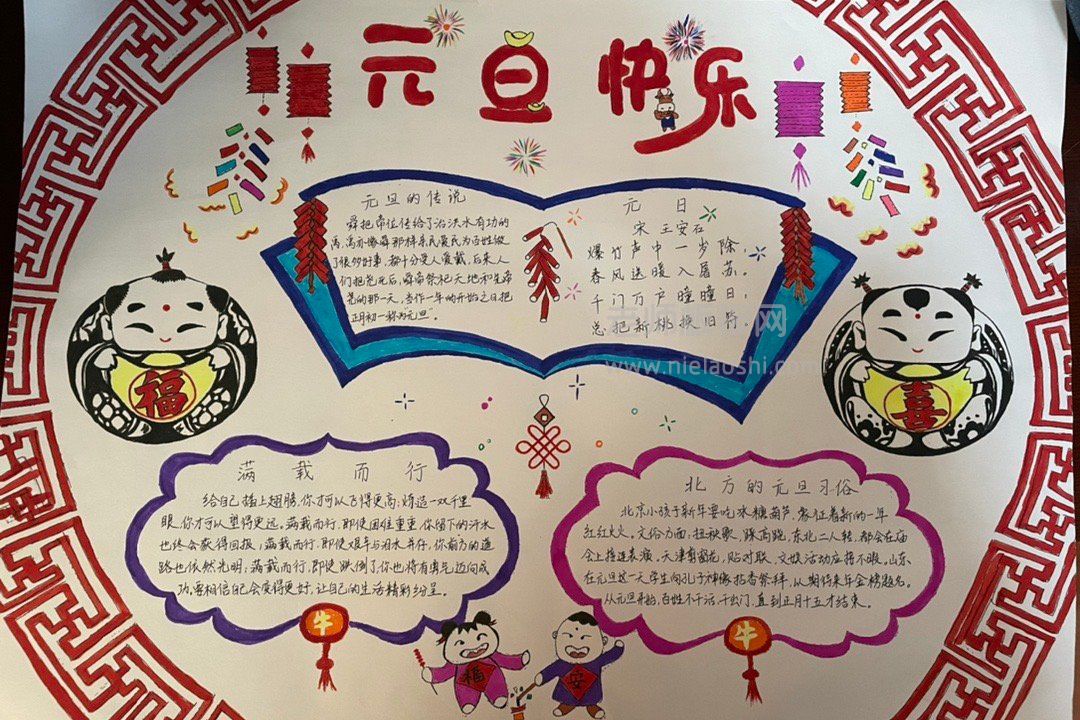 元旦快乐
元旦的传说
舜把帝位传给了治洪水有功的
禹,禹亦像舜那样亲民爱民为百姓做
了很多好事,都十分受人爱戴,后来人
们把尧死后,舜帝祭祀天地和先帝
尧的那一天,当作一年的开始之日,把
正月初一称为元旦。
元日
宋 王安石
爆竹声中一岁除,
春风送暖入屠苏。
千门万户曈曈日,
总把新桃换旧符。
www.nielaoshi.com
福
喜
满载而行
给自己插上翅膀,你才可以飞得更高;炼造一双千里
眼,你才可以望得更远,满载而行,即使困住重重,你留下的汗水
也终会获得回报;满载而行,即使艰辛与泪水并存,你前方的道
路也依然光明;满载而行,即使跌倒了,你也将有勇气迈向成
功,要相信自己会变得更好,让自己的生活精彩纷呈。
北方的元旦习俗
北京小孩子新年要吃冰糖葫芦,象征着新的一年
红红火火,文俗方面,扭秧歌,踩高跷,东北二人转,都会在庙
会上接连表演,天津剪窗花,贴对联,文娱活动应接不暇,山东
在元旦这一天学生向孔子神像拈香祭拜,以期将来年金榜题名。
从元旦开始,百姓不干活,不出门,直到正月十五才结束。
牛
牛
福
安